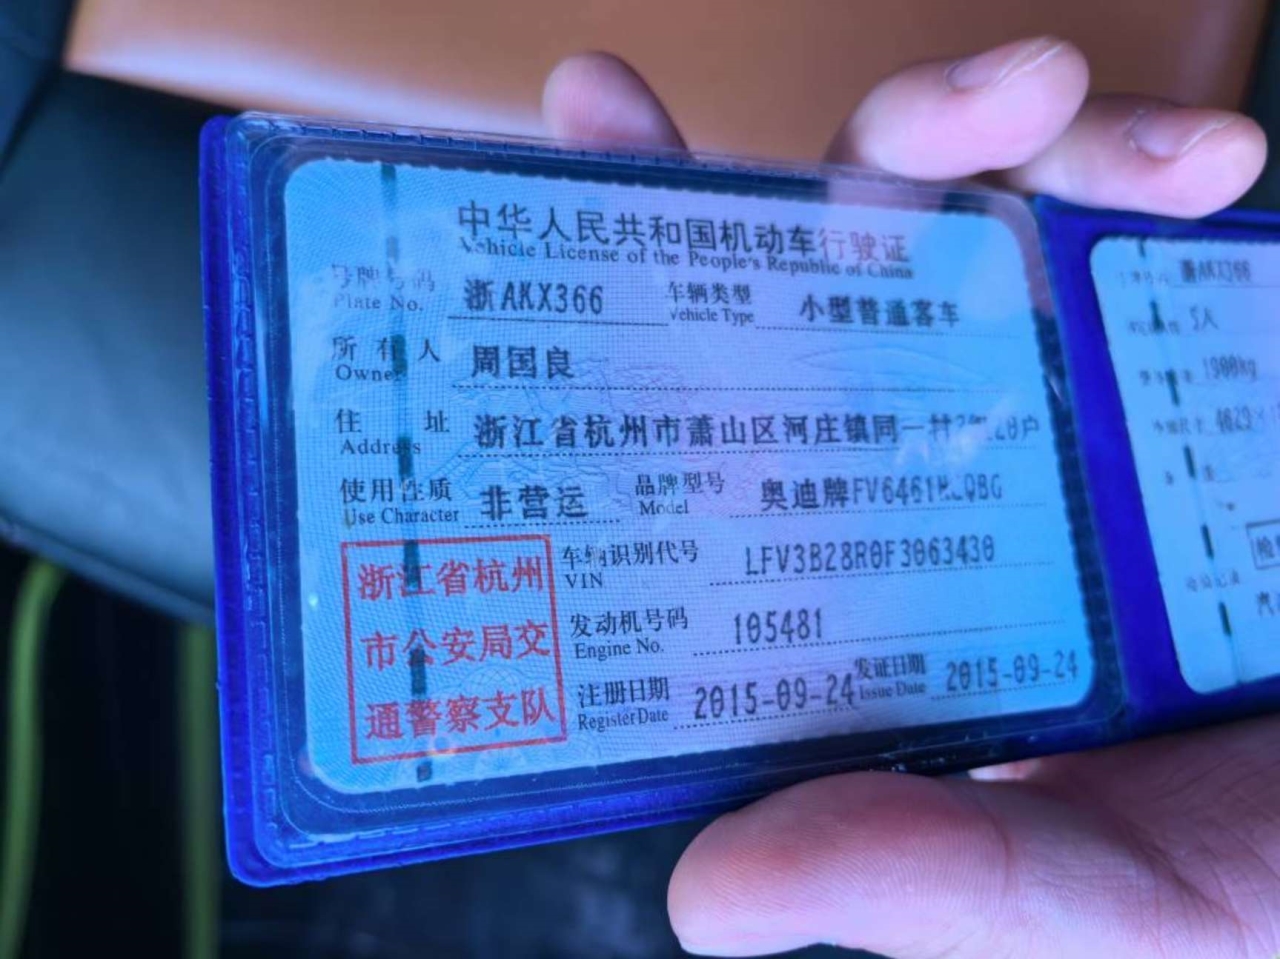 中华人民共和国机动车行驶证
Vehicle License of the People's Republic of China
号牌号码 浙AKX366 车辆类型 小型普通客车
Plate No. Vehicle Type
所有人 周国良
Owner
住址 浙江省杭州市萧山区河庄镇同一村
Address
使用性质 非营运 品牌型号 奥迪牌
Use Character Model
浙江省杭州
市公安局交
通警察支队
车辆识别代号 LFV3B28R0F3063430
VIN
发动机号码 105481
Engine No.
注册日期 2015-09-24 发证日期 2015-09-24
Register Date Issue Date
浙AKX366
5人